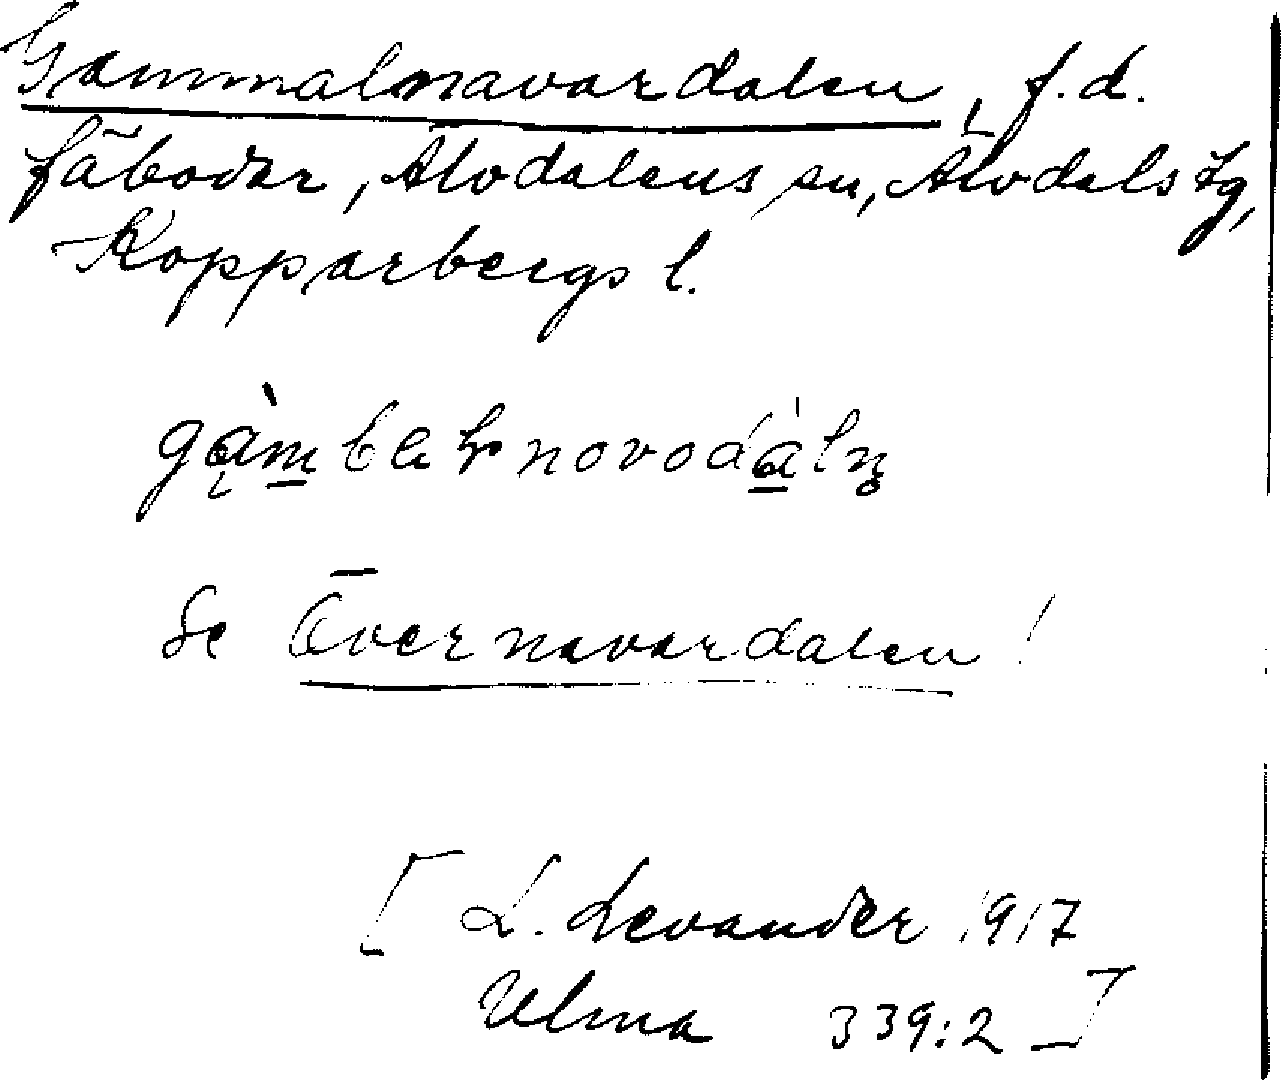 Gammalnavardalen, f.d.
fäbodar, Älvdalens sn, Älvdals tg,
Kopparbergs l.
Se Övernavardalen!
[L. Levander 1917
Ulma 339:2]